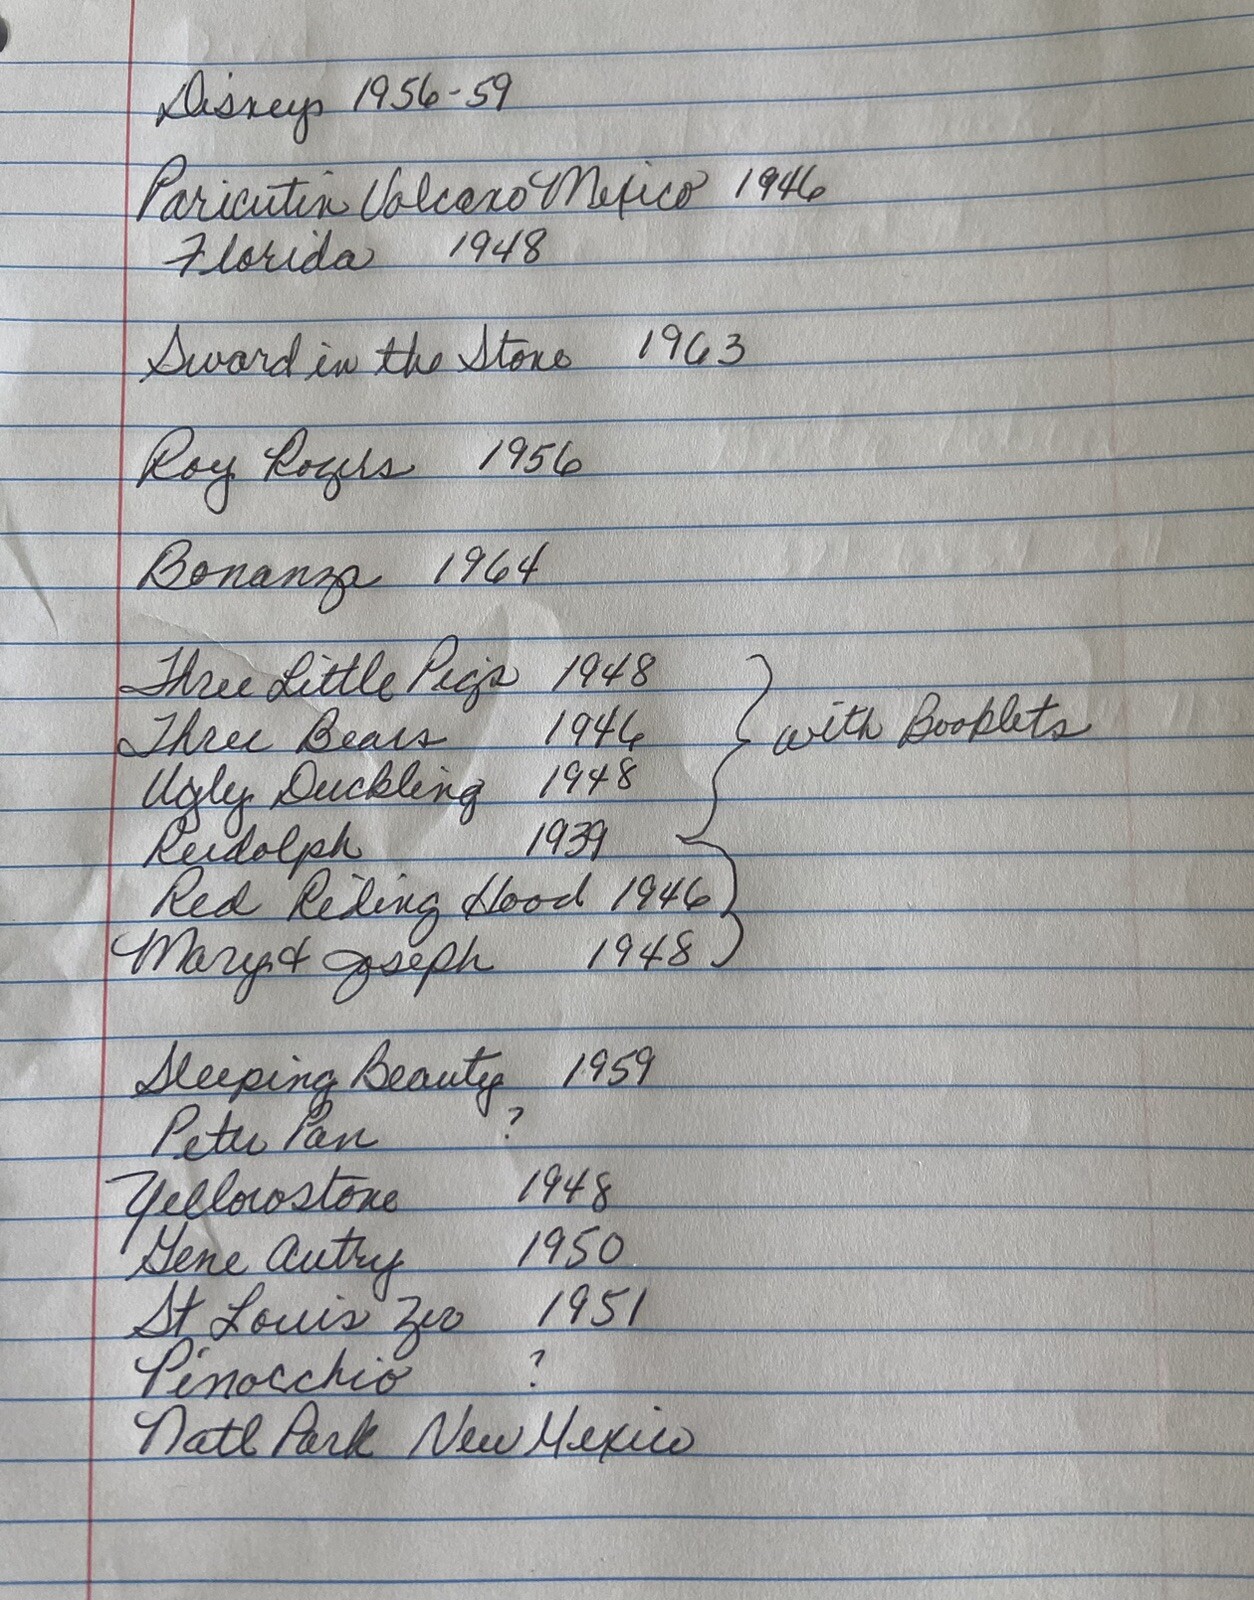 Disneys 1956-59
Paricutin Volcano Mexico 1946
Florida 1948
Sword in the Stone 1963
Roy Rogers 1956
Bonanza 1964
Three Little Pigs 1948
Three Bears 1946 with Booklets
Ugly Duckling 1948
Rudolph 1939
Red Riding Hood 1946
Mary & Joseph 1948
Sleeping Beauty 1959
Peter Pan ?
Yellowstone 1948
Gene Autry 1950
St Louis Zoo 1951
Pinocchio ?
Natl Park New Mexico